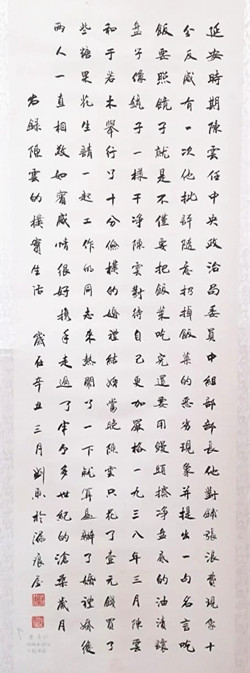 延安時期陳雲任中央政治局委員中組部部長他對鋪張浪費現象十
分反感有一次他批評隨意扔掉飯菜的惡劣現象并提出一句名言吃
飯要照鏡子就是不僅要把飯菜吃完還要用饅頭擦净盘底的油漬讓
盘子像鏡子一樣干净陳雲對待自己更加嚴格一九三八年三月陳雲
和于若木舉行了十分儉樸的婚禮結婚當晚陳雲只花了壹元錢買了
些糖果花生請一起工作的同志來熱鬧了一下就算是辦了婚禮婚後
兩人一直相敬如賓感情很好携手走過了半个多世紀的滄桑歲月
右録陳雲的樸實生活 歲在辛丑三月劉